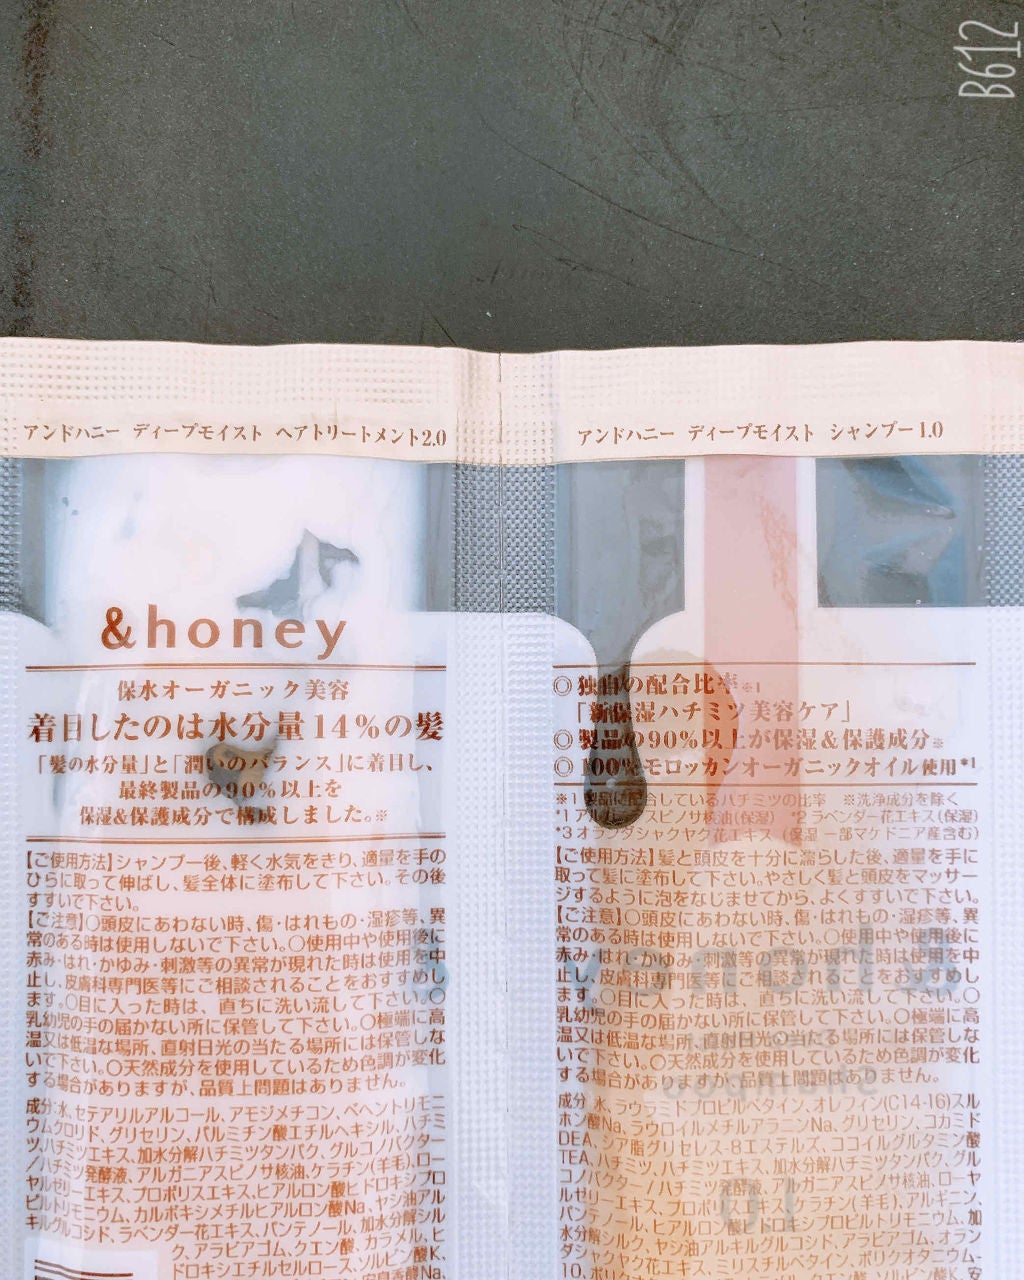 B612
アンドハニー ディープモイスト ヘアトリートメント2.0
&honey
保水オーガニック美容
着目したのは水分量14%の髪
「髪の水分量」と「潤いのバランス」に着目し、
最終製品の90%以上を
保湿&保護成分で構成しました。※
【ご使用方法】シャンプー後、軽く水気をきり、適量を手の
ひらに取って伸ばし、髪全体に塗布して下さい。その後
すすいで下さい。
【ご注意】〇頭皮にあわない時、傷・はれもの・湿疹等、異
常のある時は使用しないで下さい。〇使用中や使用後に
赤み・はれ・かゆみ・刺激等の異常が現れた時は使用を中
止し、皮膚科専門医等にご相談されることをおすすめし
ます。〇目に入った時は、直ちに洗い流して下さい。〇
乳幼児の手の届かない所に保管して下さい。〇極端に高
温又は低温な場所、直射日光の当たる場所には保管しな
いで下さい。〇天然成分を使用しているため色調が変化
する場合がありますが、品質上問題はありません。
成分:水、セテアリルアルコール、アモジメチコン、ベヘントリモニ
ウムクロリド、グリセリン、パルミチン酸エチルヘキシル、ハチミ
ツ、ハチミツエキス、加水分解ハチミツタンパク、グルコノバクター
/ハチミツ発酵液、アルガニアスピノサ核油、ケラチン(羊毛)、ロー
ヤルゼリーエキス、プロポリスエキス、ヒアルロン酸ヒドロキシプロ
ピルトリモニウム、カルボキシメチルヒアルロン酸Na、ヤシ油アル
キルグルコシド、ラベンダー花エキス、パンテノール、加水分解シル
ク、アラビアゴム、クエン酸、カラメル、ヒ
ドロキシエチルセルロース、ソルビン酸K、
安息香酸Na、
アンドハニー ディープモイスト シャンプー1.0
◎独自の配合比率※1
「新保湿ハチミツ美容ケア」
◎製品の90%以上が保湿&保護成分※
◎100%モロッカンオーガニックオイル使用*1
※1 製品に配合しているハチミツの比率 ※洗浄成分を除く
*1 アルガニアスピノサ核油(保湿) *2 ラベンダー花エキス(保湿)
*3 オランダシャクヤク花エキス (保湿 一部マケドニア産含む)
【ご使用方法】髪と頭皮を十分に濡らした後、適量を手に
取って髪に塗布して下さい。やさしく髪と頭皮をマッサー
ジするように泡をなじませてから、よくすすいで下さい。
【ご注意】〇頭皮にあわない時、傷・はれもの・湿疹等、異
常のある時は使用しないで下さい。〇使用中や使用後に
赤み・はれ・かゆみ・刺激等の異常が現れた時は使用を中
止し、皮膚科専門医等にご相談されることをおすすめし
ます。〇目に入った時は、直ちに洗い流して下さい。〇
乳幼児の手の届かない所に保管して下さい。〇極端に高
温又は低温な場所、直射日光の当たる場所には保管しな
いで下さい。〇天然成分を使用しているため色調が変化
する場合がありますが、品質上問題はありません。
成分:水、ラウラミドプロピルベタイン、オレフィン(C14-16)スル
ホン酸Na、ラウロイルメチルアラニンNa、グリセリン、コカミド
DEA、シア脂グリセレス-8エステルズ、ココイルグルタミン酸
TEA、ハチミツ、ハチミツエキス、加水分解ハチミツタンパク、グル
コノバクター/ハチミツ発酵液、アルガニアスピノサ核油、ローヤ
ルゼリーエキス、プロポリスエキス、ケラチン(羊毛)、アルギニン、
パンテノール、ヒアルロン酸ヒドロキシプロピルトリモニウム、加
水分解シルク、ヤシ油アルキルグルコシド、アラビアゴム、オラン
ダシャクヤク花エキス、ミリスチルベタイン、ポリクオタニウム-
10、ポリクオタニウム